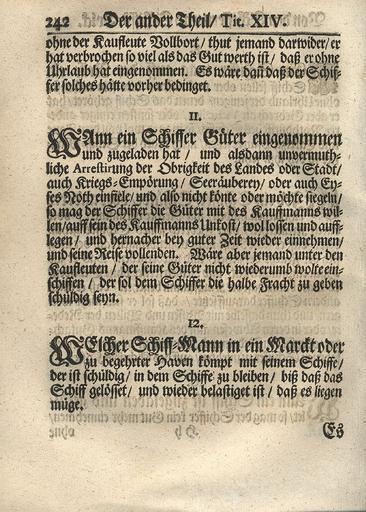 242 Der ander Theil/ Tit. XIV.
ohne der Kaufleute Vollbort/ thut jemand darwider/ er
hat verbrochen so viel als das Gut werth ist/ daß er ohne
Uhrlaub hat eingenommen. Es wäre dan̄ daß der Schif-
fer solches hätte vorher bedinget.
11.
WAnn ein Schiffer Güter eingenommen
und zugeladen hat/ und alsdann unvermuth-
liche Arrestirung der Obrigkeit des Landes oder Stadt/
auch Kriegs-Empörung/ Seeräuberey/ oder auch Ey-
ses Noth einfiele/ und also nicht könte oder möchte siegeln/
so mag der Schiffer die Güter mit des Kauffmanns wil-
len/ auff sein des Kauffmanns Unkost/ wol lossen und auff-
legen/ und hernacher bey guter Zeit wieder einnehmen/
und seine Reise vollenden. Wäre aber jemand unter den
Kaufleuten/ der seine Güter nicht wiederumb wolte ein-
schiffen/ der sol dem Schiffer die halbe Fracht zu geben
schüldig seyn.
12.
WElcher Schiff-Mann in ein Marckt oder
zu begehrter Haven kömpt mit seinem Schiffe/
der ist schüldig/ in dem Schiffe zu bleiben/ biß daß das
Schiff gelösset/ und wieder belastiget ist/ daß es liegen
müge.
Es